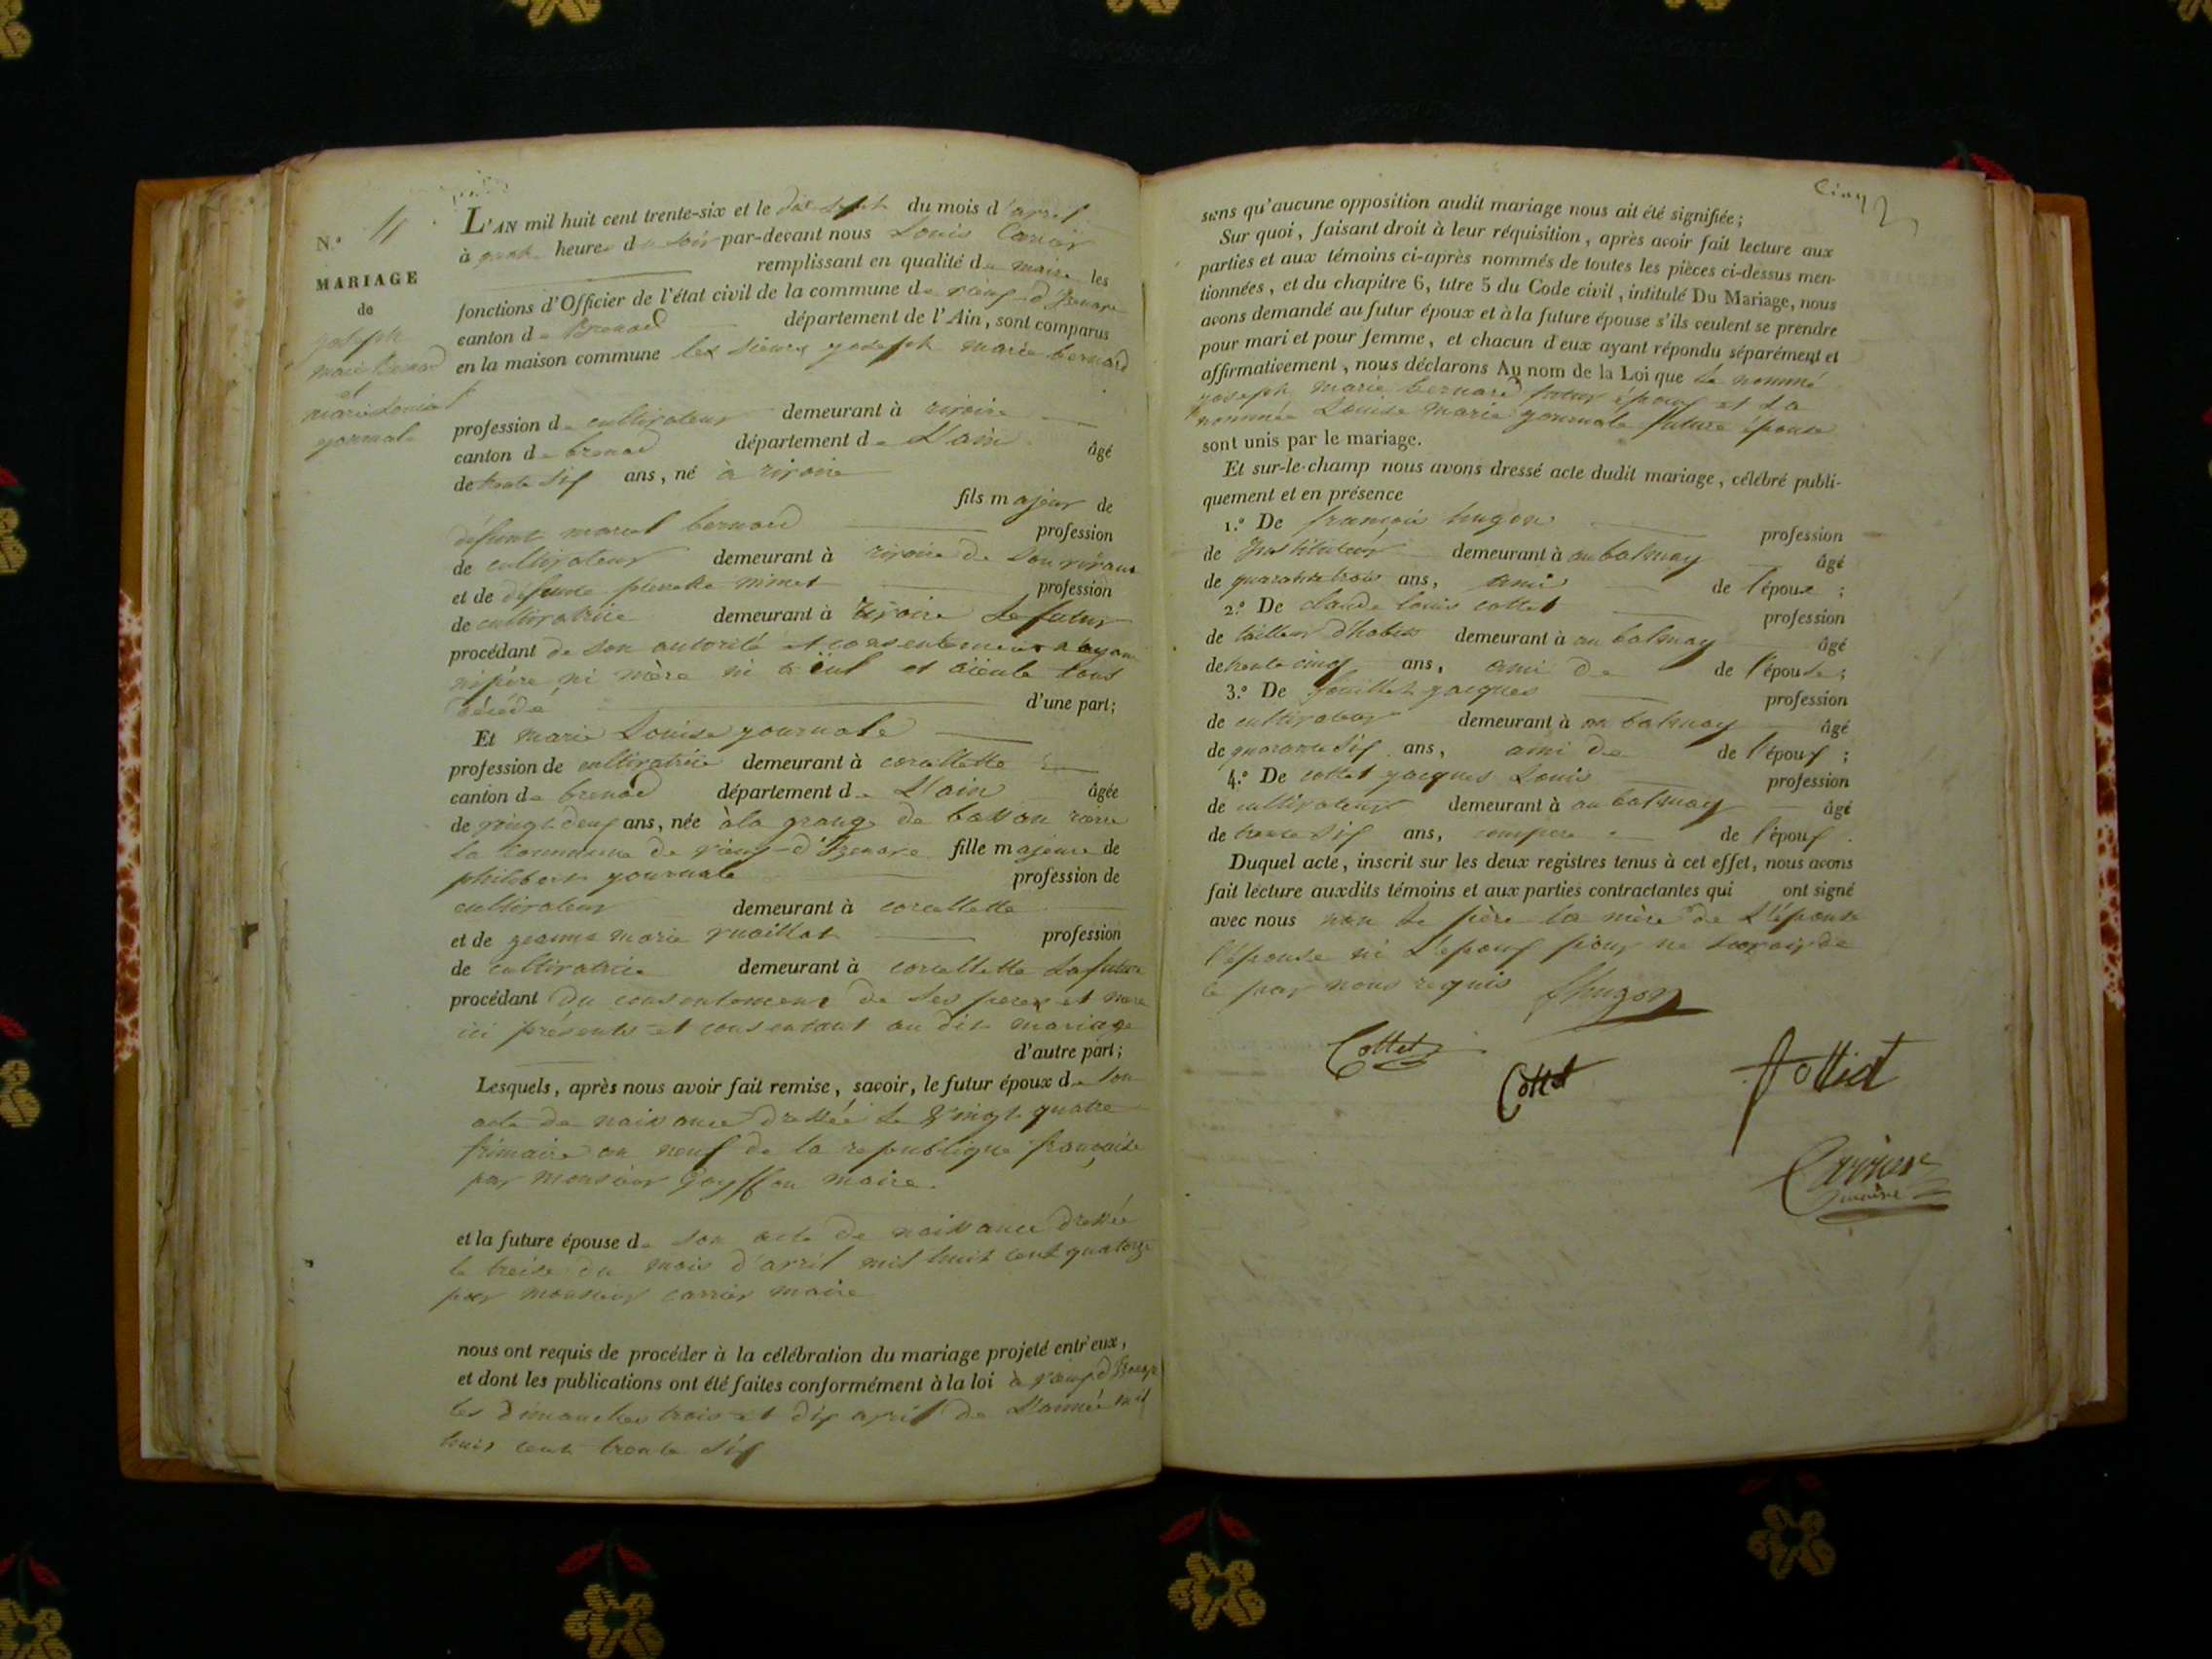 N.º
MARIAGE
de
joseph
marie Bernard
et
marie Louise
journale
L'AN mil huit cent trente-six et le dix sept du mois d'avril
à quatre heures du soir par-devant nous Louis Carrier
remplissant en qualité de maire les
fonctions d'Officier de l'état civil de la commune de vieux-d'Izenave
canton de Brenod département de l'Ain, sont comparus
en la maison commune les sieurs joseph marie bernard
profession de cultivateur demeurant à rivoire
canton de brenod département de L'ain âgé
de trente six ans, né à rivoire
fils majeur de
défunt marcel bernard profession
de cultivateur demeurant à rivoire de son vivant
et de défunte pierrette minet profession
de cultivatrice demeurant à rivoire Le futur
procédant de son autorité et consentement n'ayant
ni père ni mère ni aïeul et aïeule tous
décédé d'une part;
Et marie Louise journale
profession de cultivatrice demeurant à corcellette
canton de brenod département de L'ain âgée
de vingt deux ans, née à la grange de
la commune de vieux-d'Izenave fille majeure de
philibert journale profession de
cultivateur demeurant à corcellette
et de jeanne marie ruaillat profession
de cultivatrice demeurant à corcellette La future
procédant du consentement de ses peres et mere
ici présents et consentant au dit mariage
d'autre part;
Lesquels, après nous avoir fait remise, savoir, le futur époux de son
acte de naissance dressée le vingt quatre
frimaire an neuf de la republique française
par monsieur Goyffon maire.
et la future épouse de son acte de naissance dressée
le treize du mois d'avril mil huit cent quatorze
par monsieur carrier maire
nous ont requis de procéder à la célébration du mariage projeté entr'eux,
et dont les publications ont été faites conformément à la loi à vieux d'Izenave
les dimanches trois et dix avril de L'année mil
huit cent trente six
Cinq
sans qu'aucune opposition audit mariage nous ait été signifiée;
Sur quoi, faisant droit à leur réquisition, après avoir fait lecture aux
parties et aux témoins ci-après nommés de toutes les pièces ci-dessus men-
tionnées, et du chapitre 6, titre 5 du Code civil, intitulé Du Mariage, nous
avons demandé au futur époux et à la future épouse s'ils veulent se prendre
pour mari et pour femme, et chacun d'eux ayant répondu séparément et
affirmativement, nous déclarons Au nom de la Loi que Le nommé
joseph marie bernard futur époux et La
nommée Louise marie journale future épouse
sont unis par le mariage.
Et sur-le-champ nous avons dressé acte dudit mariage, célébré publi-
quement et en présence
1.º De françois hugon profession
de Instituteur demeurant à au balmay âgé
de quarante trois ans, ami de l'épouse;
2.º De claude louis cottet profession
de tailleur d'habits demeurant à au balmay âgé
de trente cinq ans, ami de de l'épouse;
3.º De jacques profession
de cultivateur demeurant à au balmay âgé
de quarante six ans, ami de de l'époux;
4.º De cottet jacques Louis profession
de cultivateur demeurant à au balmay âgé
de trente six ans, compere de l'époux.
Duquel acte, inscrit sur les deux registres tenus à cet effet, nous avons
fait lecture auxdits témoins et aux parties contractantes qui ont signé
avec nous non Le père la mère de L'épouse
l'épouse ni L'époux pour ne sçavoir de
ce par nous requis fhugon
Cottet
Cottet
Carrier
maire